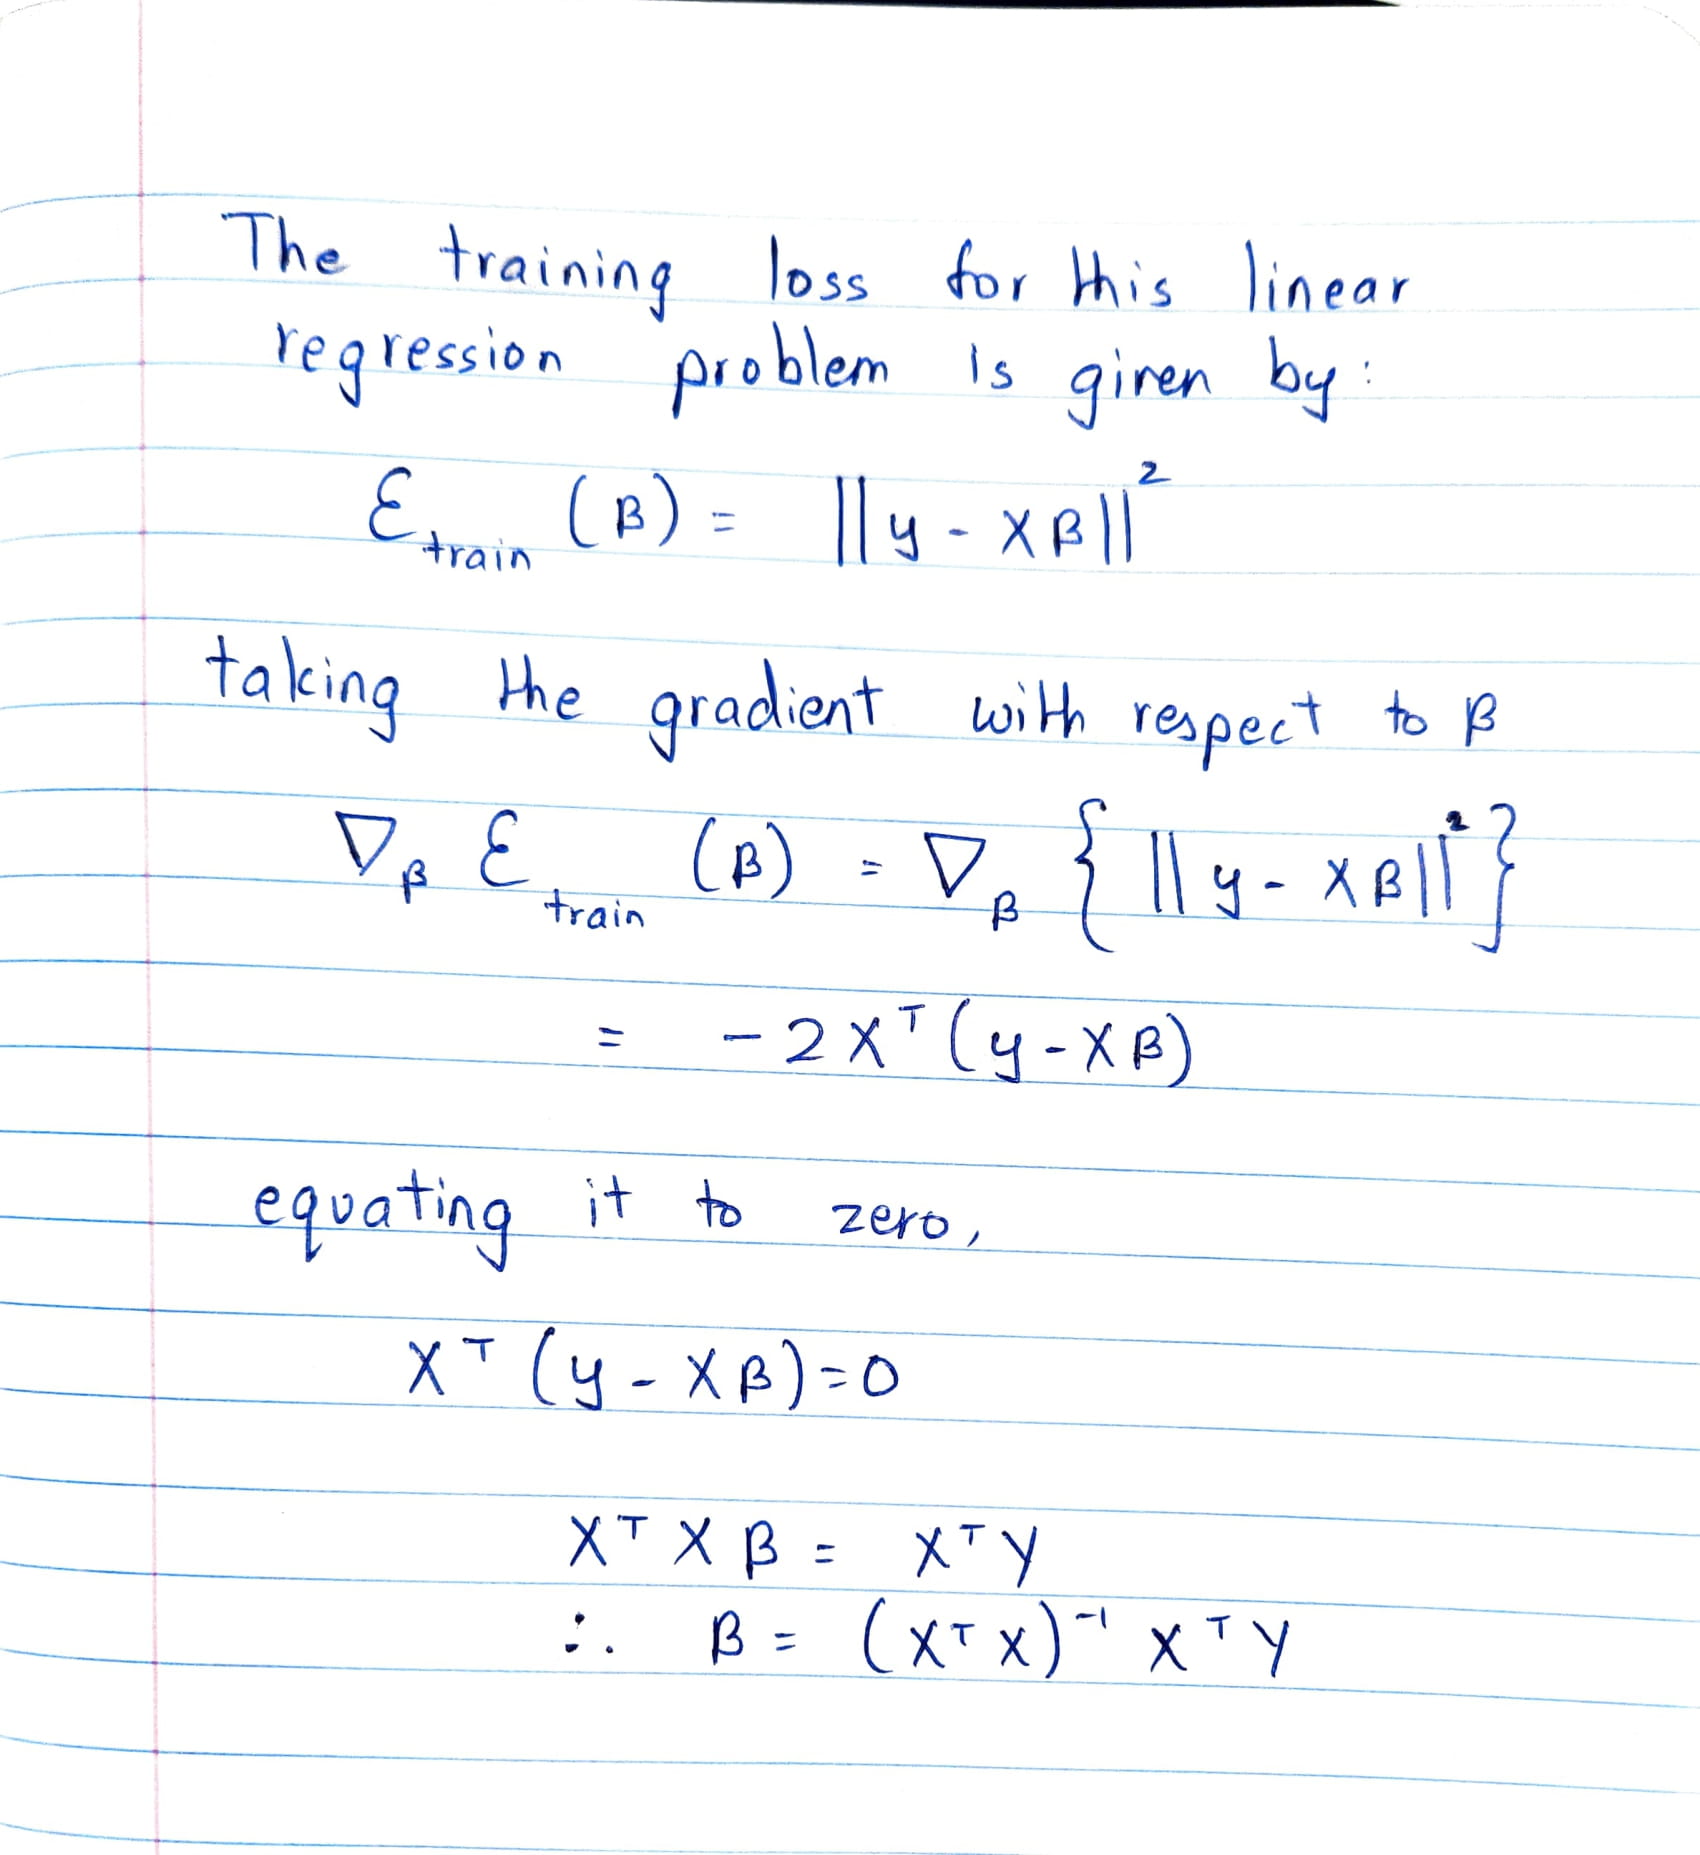 The training loss for this linear
regression problem is given by:
Ɛ_train (β) = ||y - Xβ||²
taking the gradient with respect to β
∇_β Ɛ_train (β) = ∇_β { ||y - Xβ||² }
= -2X^T (y - Xβ)
equating it to zero,
X^T (y - Xβ) = 0
X^T X β = X^T Y
∴ β = (X^T X)^-1 X^T Y